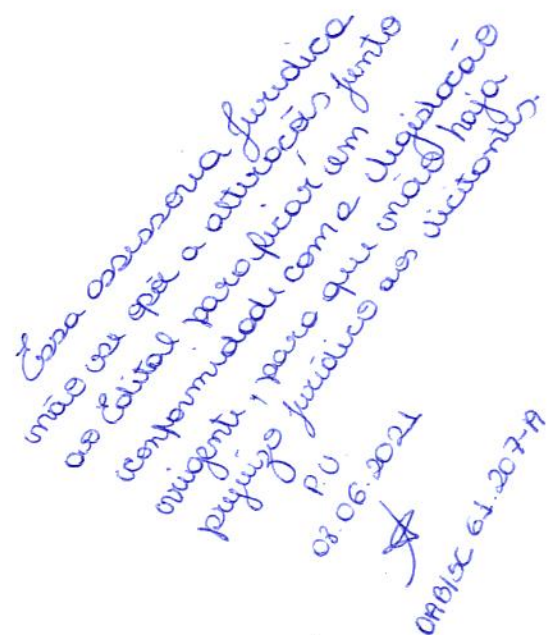 Essa assessoria Jurídica
não se opõe a alterações junto
ao Edital para ficar em
conformidade com a legislação
vigente, para que não haja
prejuízo jurídico aos licitantes.
P.U
08.06.2021
OAB/SC 61.207-A